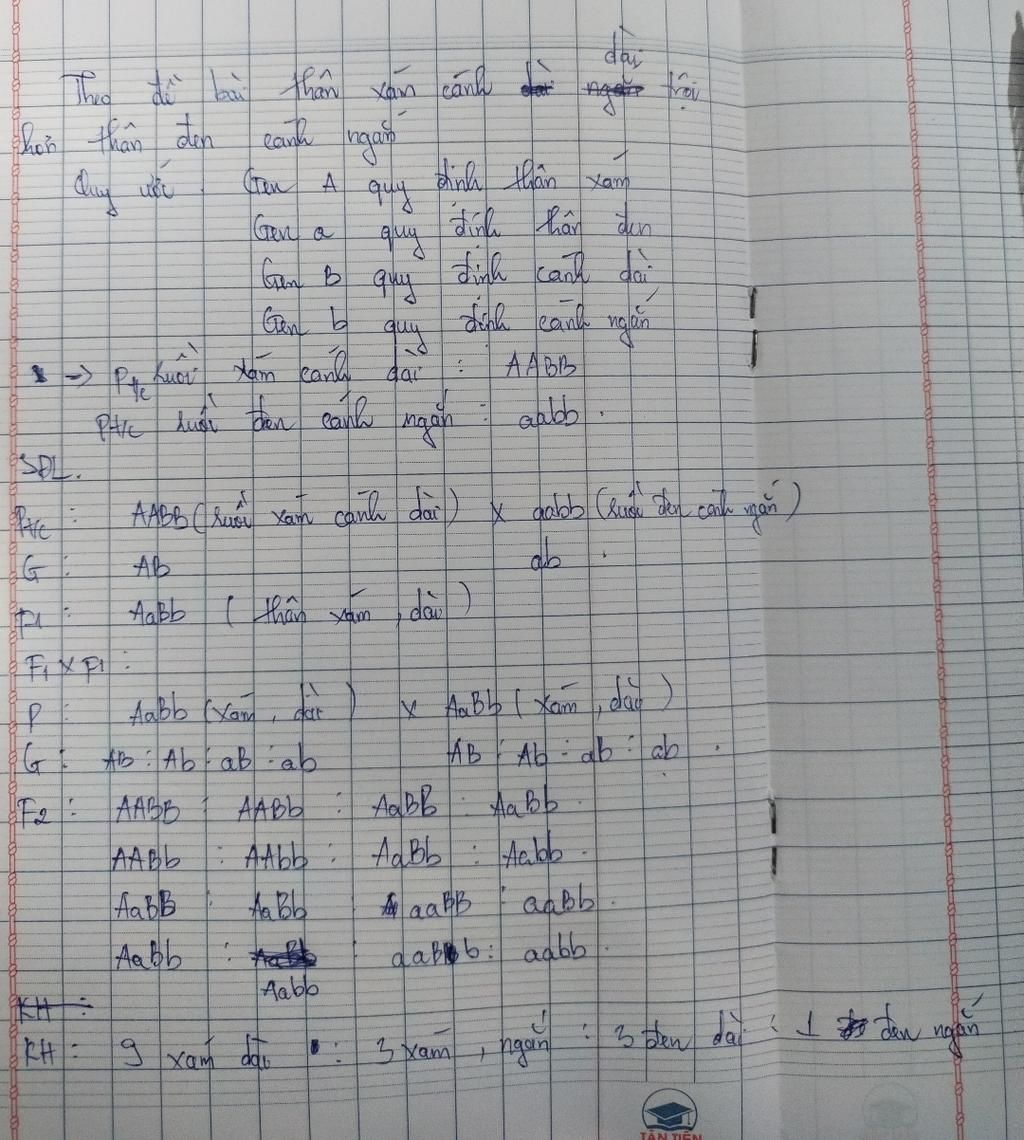 Theo đề bài thân xám cánh dài trội
hơn thân đen cánh ngắn
Quy ước : Gen A quy định thân xám
Gen a quy định thân đen
Gen B quy định cánh dài
Gen b quy định cánh ngắn
-> Pt/c ruồi xám cánh dài : AABB
Pt/c ruồi đen cánh ngắn : aabb.
SĐL.
Pt/c : AABB (ruồi xám cánh dài) x aabb (ruồi đen cánh ngắn)
G : AB ab .
F1 : AaBb (thân xám, dài)
F1 x F1 :
P : AaBb (xám, dài) x AaBb (xám, dài)
G : AB : Ab : aB : ab AB : Ab : ab : ab .
F2 : AABB : AABb : AaBB : AaBb .
AABb : AAbb : AaBb : Aabb .
AaBB : AaBb : aaBB : aaBb .
AaBb : aaBb : aabb .
Aabb
KH :
KH : 9 xám dài : 3 xám, ngắn : 3 đen dài : 1 đen ngắn
TÂN TIẾN